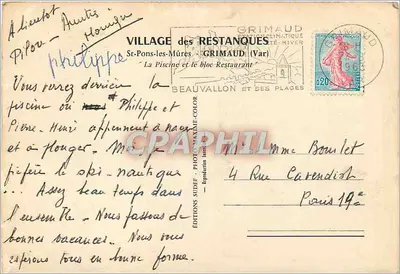 A bientôt
Pilou - Annter
Monique
philippe
VILLAGE des RESTANQUES
St-Pons-les-Mûres - GRIMAUD (Var)
"La Piscine et le Bloc Restaurant"
GRIMAUD
BEAUVALLON ET SES PLAGES
GRIMAUD
0,20
Vous voyez derrière la
piscine où Philippe et
Pierre-Henri apprennent à nager
et à plonger. Moi je
préfère le ski-nautique
... Assez beau temps dans
l'ensemble - Nous passons de
bonnes vacances. Nous vous
espérons tous en bonne forme.
EDITIONS SUDEF - PHOTO
COLOR
Reproduction
M et Mme Boulet
4 Rue Cavendish
Paris 19e
CPAPHIL.COM